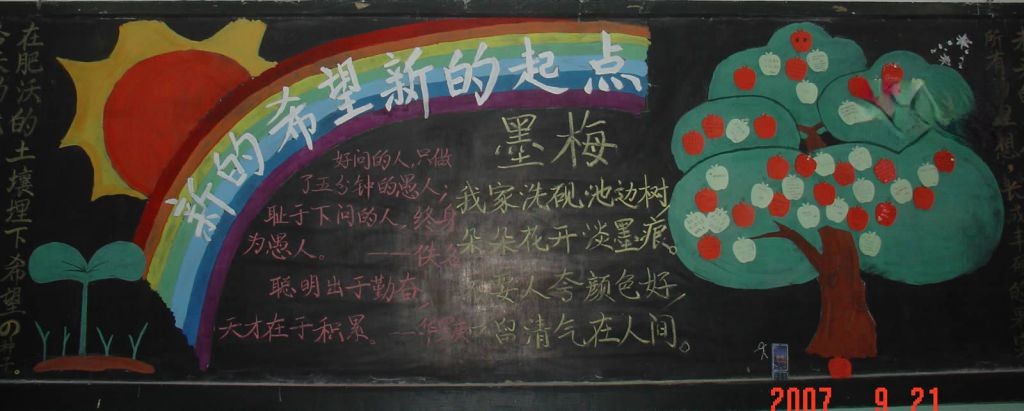 在肥沃的土壤埋下希望の
新的希望新的起点
好问的人,只做
了五分钟的愚人;
耻于下问的人,终身
为愚人。 ——佚名
聪明出于勤奋,
天才在于积累。 ——华
墨梅
我家洗砚池边树,
朵朵花开淡墨痕。
要人夸颜色好,
留清气在人间。
所有
想,长成丰硕的果实
2007 9 21